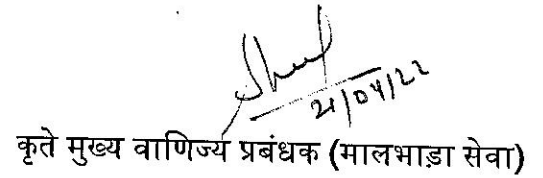 21/04/22
कृते मुख्य वाणिज्य प्रबंधक (मालभाड़ा सेवा)